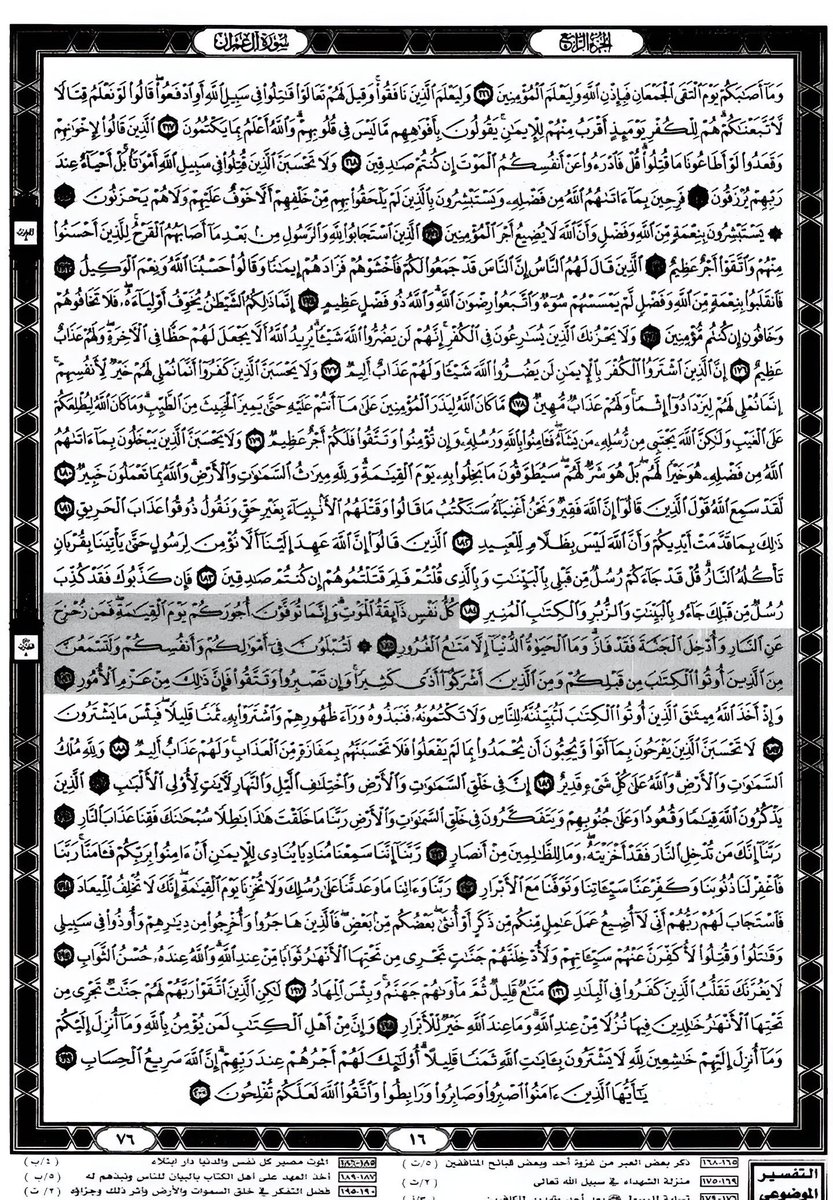 سورة آل عمران
الجزء الرابع
وما أصابكم يوم التقى الجمعان فبإذن الله وليعلم المؤمنين ١٦٦ وليعلم الذين نافقوا وقيل لهم تعالوا قاتلوا في سبيل الله أو ادفعوا قالوا لو نعلم قتالا
لاتبعناكم هم للكفر يومئذ أقرب منهم للإيمان يقولون بأفواههم ما ليس في قلوبهم والله أعلم بما يكتمون ١٦٧ الذين قالوا لإخوانهم
وقعدوا لو أطاعونا ما قتلوا قل فادرءوا عن أنفسكم الموت إن كنتم صادقين ١٦٨ ولا تحسبن الذين قتلوا في سبيل الله أمواتا بل أحياء عند
ربهم يرزقون ١٦٩ فرحين بما ءاتاهم الله من فضله ويستبشرون بالذين لم يلحقوا بهم من خلفهم ألا خوف عليهم ولا هم يحزنون ١٧٠
۞ يستبشرون بنعمة من الله وفضل وأن الله لا يضيع أجر المؤمنين ١٧١ الذين استجابوا لله والرسول من بعد ما أصابهم القرح للذين أحسنوا
منهم واتقوا أجر عظيم ١٧٢ الذين قال لهم الناس إن الناس قد جمعوا لكم فاخشوهم فزادهم إيمانا وقالوا حسبنا الله ونعم الوكيل ١٧٣
فانقلبوا بنعمة من الله وفضل لم يمسسهم سوء واتبعوا رضوان الله والله ذو فضل عظيم ١٧٤ إنما ذلكم الشيطان يخوف أولياءه فلا تخافوهم
وخافون إن كنتم مؤمنين ١٧٥ ولا يحزنك الذين يسارعون في الكفر إنهم لن يضروا الله شيئا يريد الله ألا يجعل لهم حظا في الآخرة ولهم عذاب
عظيم ١٧٦ إن الذين اشتروا الكفر بالإيمان لن يضروا الله شيئا ولهم عذاب أليم ١٧٧ ولا يحسبن الذين كفروا أنما نملي لهم خير لأنفسهم
إنما نملي لهم ليزدادوا إثما ولهم عذاب مهين ١٧٨ ما كان الله ليذر المؤمنين على ما أنتم عليه حتى يميز الخبيث من الطيب وما كان الله ليطلعكم
على الغيب ولكن الله يجتبي من رسله من يشاء فآمنوا بالله ورسله وإن تؤمنوا وتتقوا فلكم أجر عظيم ١٧٩ ولا يحسبن الذين يبخلون بما ءاتاهم
الله من فضله هو خيرا لهم بل هو شر لهم سيطوقون ما بخلوا به يوم القيامة ولله ميراث السماوات والأرض والله بما تعملون خبير ١٨٠
لقد سمع الله قول الذين قالوا إن الله فقير ونحن أغنياء سنكتب ما قالوا وقتلهم الأنبياء بغير حق ونقول ذوقوا عذاب الحريق ١٨١
ذلك بما قدمت أيديكم وأن الله ليس بظلام للعبيد ١٨٢ الذين قالوا إن الله عهد إلينا ألا نؤمن لرسول حتى يأتينا بقربان
تأكله النار قل قد جاءكم رسل من قبلي بالبينات وبالذي قلتم فلم قتلتموهم إن كنتم صادقين ١٨٣ فإن كذبوك فقد كذب
رسل من قبلك جاءو بالبينات والزبر والكتاب المنير ١٨٤ كل نفس ذائقة الموت وإنما توفون أجوركم يوم القيامة فمن زحزح
عن النار وأدخل الجنة فقد فاز وما الحياة الدنيا إلا متاع الغرور ١٨٥ ۞ لتبلون في أموالكم وأنفسكم ولتسمعن
من الذين أوتوا الكتاب من قبلكم ومن الذين أشركوا أذى كثيرا وإن تصبروا وتتقوا فإن ذلك من عزم الأمور ١٨٦
وإذ أخذ الله ميثاق الذين أوتوا الكتاب لتبيننه للناس ولا تكتمونه فنبذوه وراء ظهورهم واشتروا به ثمنا قليلا فبئس ما يشترون
١٨٧ لا تحسبن الذين يفرحون بما أتوا ويحبون أن يحمدوا بما لم يفعلوا فلا تحسبنهم بمفازة من العذاب ولهم عذاب أليم ١٨٨ ولله ملك
السماوات والأرض والله على كل شيء قدير ١٨٩ إن في خلق السماوات والأرض واختلاف الليل والنهار لآيات لأولي الألباب ١٩٠ الذين
يذكرون الله قياما وقعودا وعلى جنوبهم ويتفكرون في خلق السماوات والأرض ربنا ما خلقت هذا باطلا سبحانك فقنا عذاب النار ١٩١
ربنا إنك من تدخل النار فقد أخزيته وما للظالمين من أنصار ١٩٢ ربنا إننا سمعنا مناديا ينادي للإيمان أن ءامنوا بربكم فآمنا ربنا
فاغفر لنا ذنوبنا وكفر عنا سيئاتنا وتوفنا مع الأبرار ١٩٣ ربنا وءاتنا ما وعدتنا على رسلك ولا تخزنا يوم القيامة إنك لا تخلف الميعاد ١٩٤
فاستجاب لهم ربهم أني لا أضيع عمل عامل منكم من ذكر أو أنثى بعضكم من بعض فالذين هاجروا وأخرجوا من ديارهم وأوذوا في سبيلي
وقاتلوا وقتلوا لأكفرن عنهم سيئاتهم ولأدخلنهم جنات تجري من تحتها الأنهار ثوابا من عند الله والله عنده حسن الثواب ١٩٥
لا يغرنك تقلب الذين كفروا في البلاد ١٩٦ متاع قليل ثم مأواهم جهنم وبئس المهاد ١٩٧ لكن الذين اتقوا ربهم لهم جنات تجري من
تحتها الأنهار خالدين فيها نزلا من عند الله وما عند الله خير للأبرار ١٩٨ وإن من أهل الكتاب لمن يؤمن بالله وما أنزل إليكم
وما أنزل إليهم خاشعين لله لا يشترون بآيات الله ثمنا قليلا أولئك لهم أجرهم عند ربهم إن الله سريع الحساب ١٩٩
يا أيها الذين ءامنوا اصبروا وصابروا ورابطوا واتقوا الله لعلكم تفلحون ٢٠٠
١٦
٧٦
التفسير الموضوعي
١٦٥-١٦٨ ذكر بعض العبر من غزوة أحد وبعض قبائح المنافقين (٥/ت)
١٦٩-١٧٥ منزلة الشهداء في سبيل الله تعالى (٢/ت)
١٨٥-١٨٦ الموت مصير كل نفس والدنيا دار ابتلاء (٤/ب)
١٨٧-١٨٩ أخذ العهد على أهل الكتاب بالبيان للناس ونبذهم له (٥/ب)
١٩٠-١٩٥ فضل التفكر في خلق السموات والأرض وأثر ذلك وجزاؤه (٢/ت)